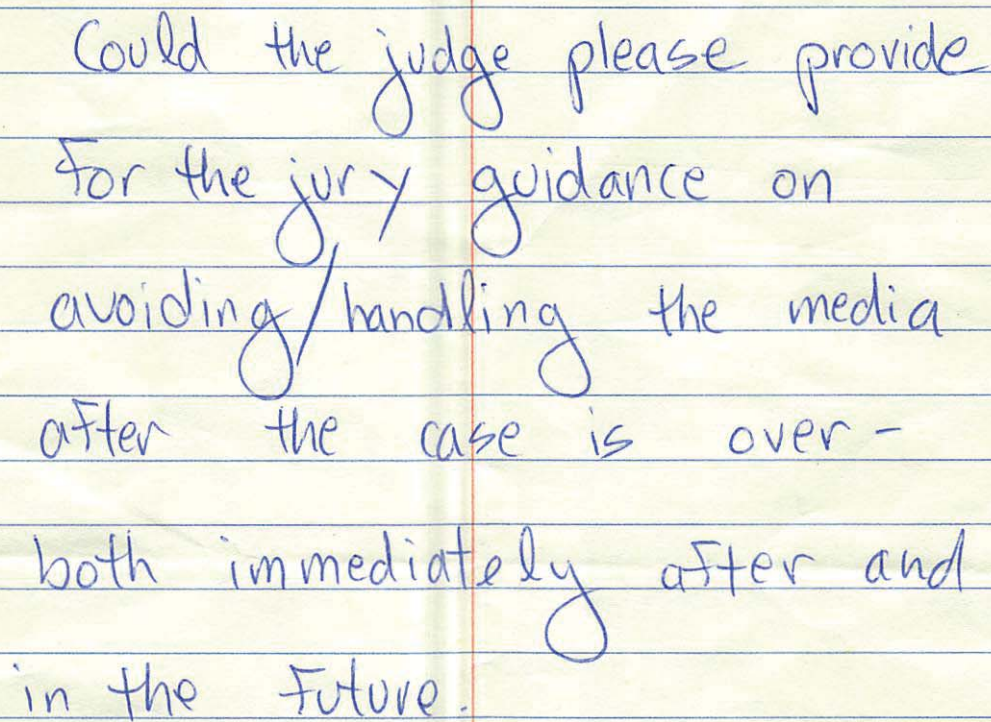 Could the judge please provide
for the jury guidance on
avoiding/handling the media
after the case is over -
both immediately after and
in the future.